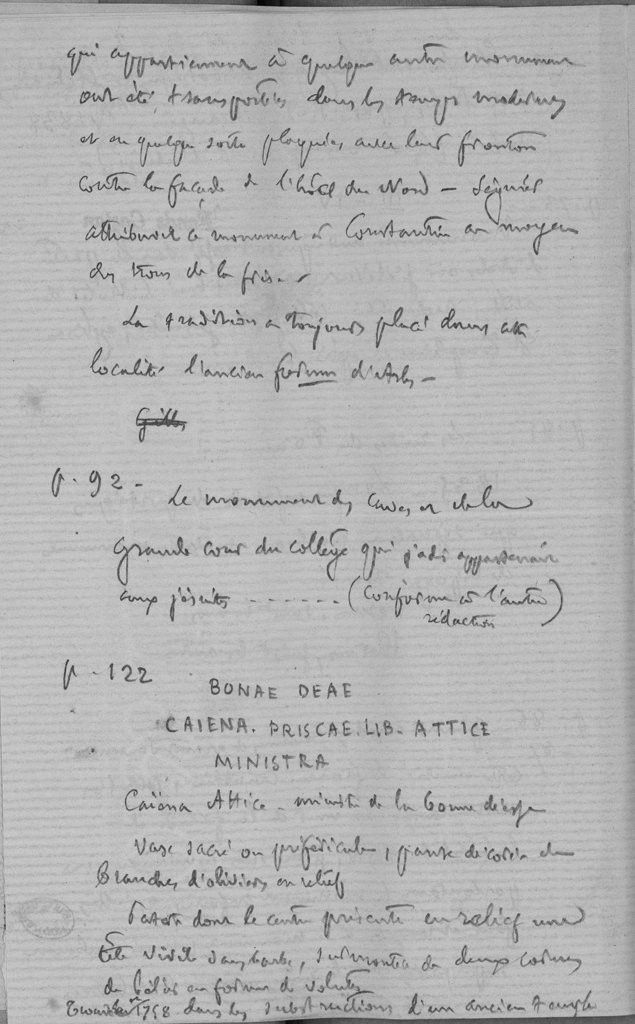 qui appartiennent à quelque autre monument
ont été transportées dans les temps modernes
et en quelque sorte plaquées avec leur fronton
contre la façade de l'hôtel du Nord — Séguier
attribuait ce monument à Constantin au moyen
des trous de la frise. -
La tradition a toujours placé dans
localité l'ancien forum d'Arles —
p. 92 -
Le monument des caves et de la
grande cour du collège qui jadis appartenait
aux jésuites - - - - - - (Conforme à l'autre
rédaction)
p. 122
BONAE DEAE
CAIENA. PRISCAE. LIB. ATTICE
MINISTRA
Caïena Attice - ministre de la bonne déesse
Vase sacré ou préféricule, panse décorée de
branches d'oliviers en relief
Patère dont le centre présente en relief une
tête virile sans barbe, surmontée de deux cornes
de bélier en forme de volutes
Trouvé en 1758 dans les substructions d'un ancien temple